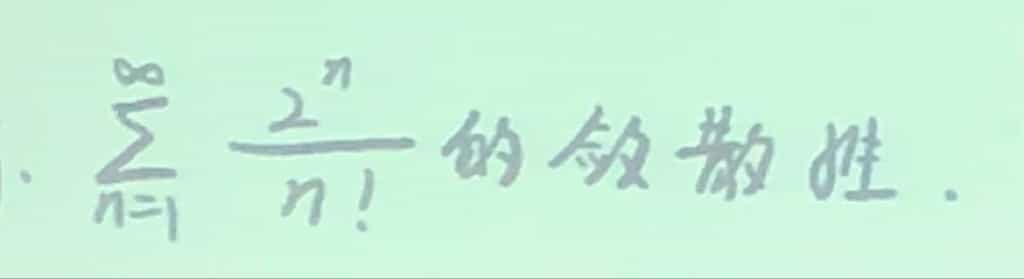 . $\sum_{n=1}^{\infty} \frac{2^n}{n!}$ 的敛散性.